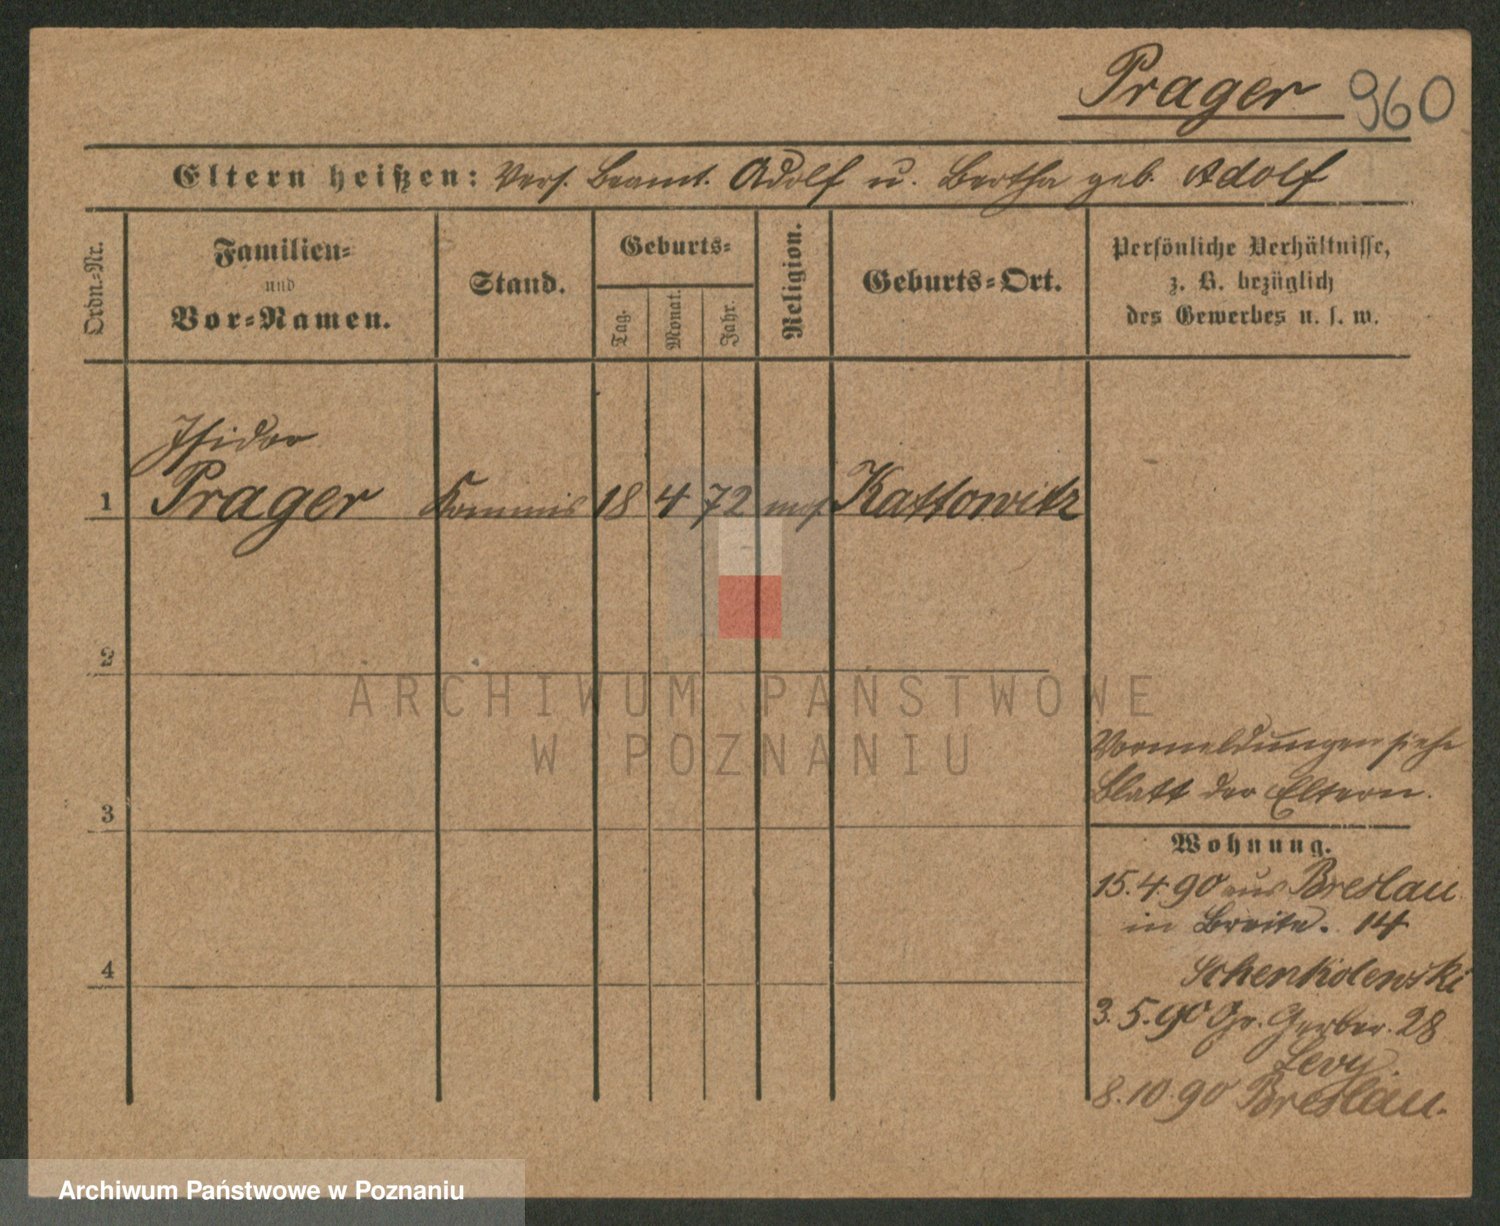 Prager 960
Eltern heißen: Vers. Beamt. Adolf u. Bertha geb. Adolf
Ordn.-Nr.
Familien-
und
Vor-Namen.
Stand.
Geburts-
Tag.
Monat.
Jahr.
Religion.
Geburts-Ort.
Persönliche Verhältnisse,
z. B. bezüglich
des Gewerbes u. s. w.
Isidor
1 Prager Kommis 18 4 72 mos Kattowitz
2
3
4
Vormeldungen siehe
Blatt der Eltern.
Wohnung.
15.4.90 aus Breslau
in Breite. 14
Schenkolewski
3.5.90 Gr. Gerber. 28
Levy.
8.10.90 Breslau.
ARCHIWUM PAŃSTWOWE
W POZNANIU
Archiwum Państwowe w Poznaniu